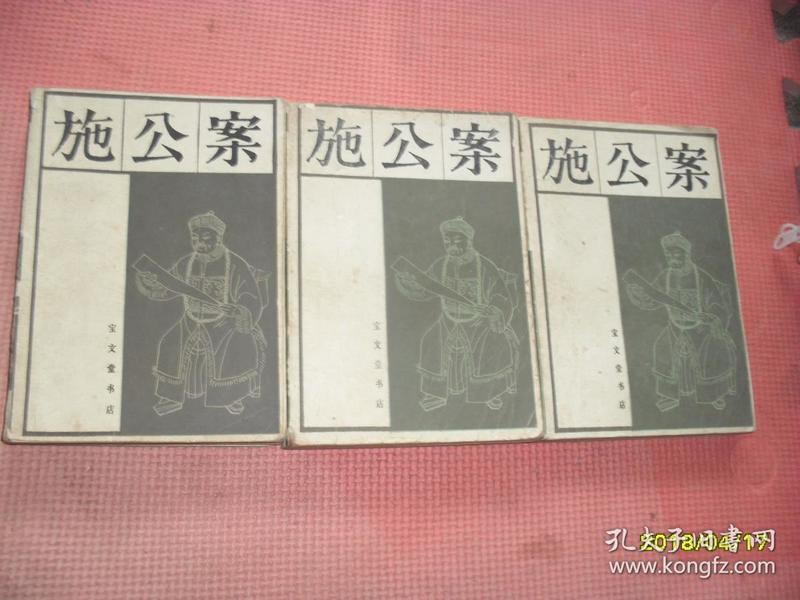 施公案
宝文堂书店
施公案
宝文堂书店
施公案
宝文堂书店
2018/04/17
孔夫子旧書网
www.kongfz.com